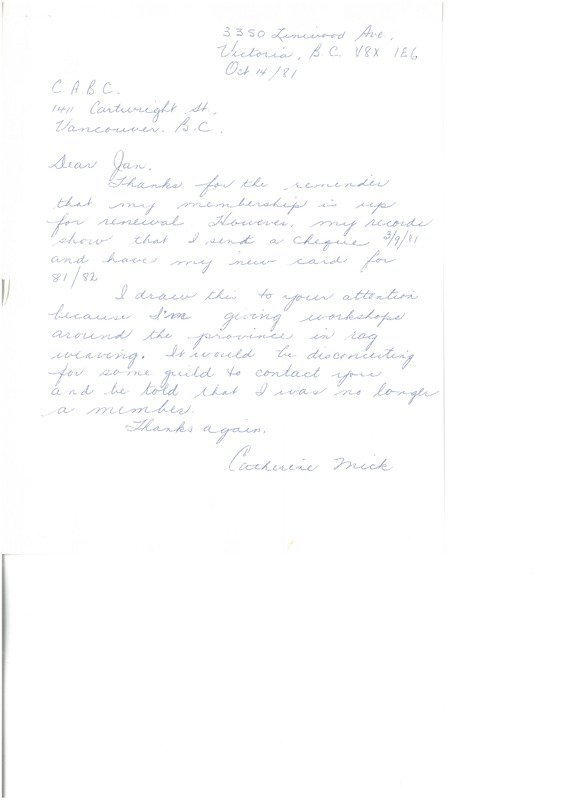 3350 Linwood Ave.
Victoria, B.C. V8X 1E6
Oct 14/81
C.A.B.C.
1411 Cartwright St.
Vancouver. B.C.
Dear Jan.
Thanks for the reminder
that my membership is up
for renewal. However, my records
show that I send a cheque 3/9/81
and have my new card for
81/82
I draw this to your attention
because I'm giving workshops
around the province in rag
weaving. It would be disconcerting
for some guild to contact you
and be told that I was no longer
a member.
Thanks again.
Catherine Mick